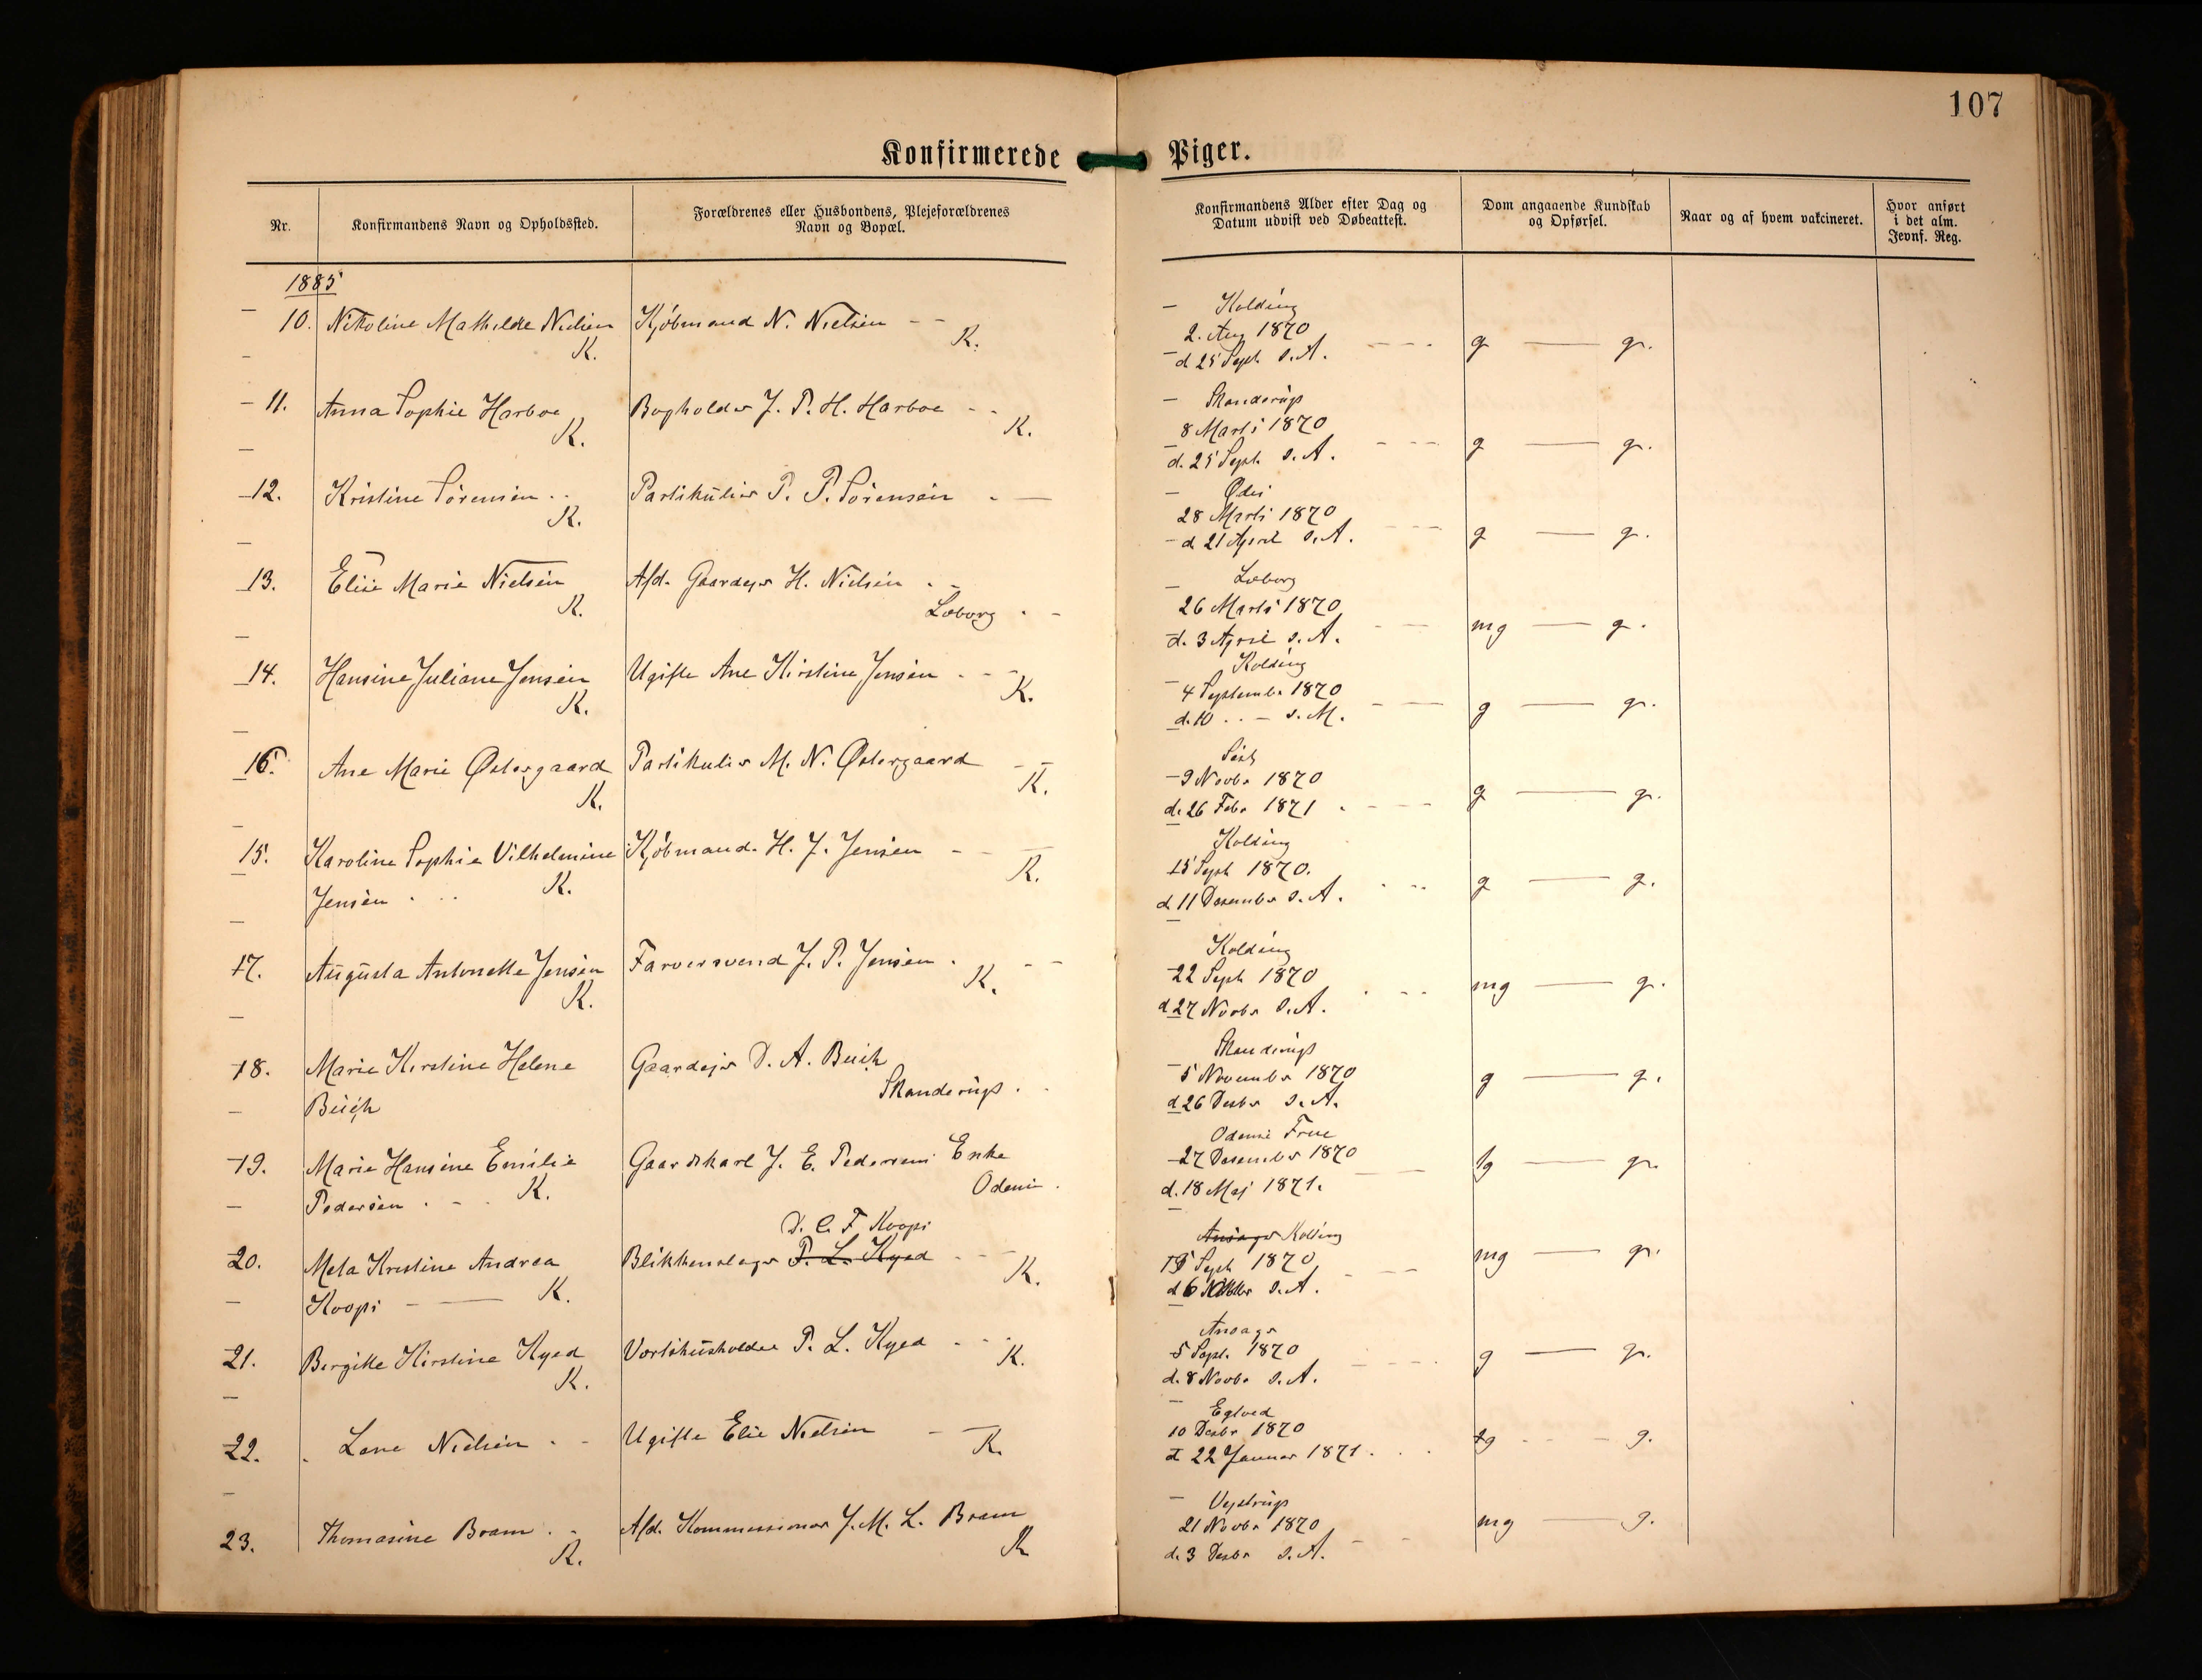 107
Konfirmerede Piger.
Nr.
Konfirmandens Navn og Opholdssted.
Forældrenes eller Husbondens, Plejeforældrenes
Navn og Bopæl.
Konfirmandens Alder efter Dag og
Datum udvist ved Døbeattest.
Dom angaaende Kundskab
og Opførsel.
Naar og af hvem vakcineret.
Hvor anført
i det alm.
Jevnf. Reg.
1885
10. Nikoline Mathilde Nielsen
K.
Kjöbmand N. Nielsen
K.
Kolding
2. Aug 1870
d 25 Sept. s. A.
g — g.
11. Anna Sophie Harboe
K.
Bogholder J. P. H. Harboe
K.
Skanderup
8 Marts 1870
d. 25 Sept. s. A.
g — g.
12. Kristine Sörensen
K.
Partikulier P. P. Sörensen
Ødis
28 Marts 1870
d 21 April s. A.
g — g.
13. Elise Marie Nielsen
K.
Afd. Gaardejer H. Nielsen
Læborg
Læborg
26 Marts 1870
d. 3 April s. A.
mg — g.
14. Hansine Juliane Jensen
K.
Ugifte Ane Kirstine Jensen
K.
Kolding
4 September 1870
d. 10 — s. M.
g — g.
16. Ane Marie Østergaard
K.
Partikulier M. N. Østergaard
K.
Seest
9 Novbr 1870
d. 26 Febr 1871
g — g.
15. Karoline Sophie Vilhelmine
Jensen K.
Kjöbmand H. J. Jensen
K.
Kolding
15 Sept 1870.
d. 11 December s. A.
g — g.
17. Augusta Antonette Jensen
K.
Farversvend J. P. Jensen
K.
Kolding
22 Sept 1870
d 27 Novbr s. A.
mg — g.
18. Marie Kirstine Helene
Buch
Gaardejer D. A. Buch
Skanderup
Skanderup
5 November 1870
d 26 Decbr s. A.
g — g.
19. Marie Hansine Emilie
Pedersen K.
Gaardskarl J. E. Pedersens Enke
Odense
Odense Frue
27 December 1870
d. 18 Maj 1871.
tg — g.
20. Meta Kristine Andrea
Koops — K.
D. C. F. Koops
Blikkenslager P. L. Kyed
K.
Ansager Kolding
Sept 1870
d 6 s. A.
mg — g.
21. Birgitte Kirstine Kyed
K.
Værtshusholder P. L. Kyed
K.
Ansager
5 Sept. 1870
d. 8 Novbr s. A.
g — g.
22. Lene Nielsen
Ugifte Else Nielsen
K.
Egtved
10 Decbr 1870
d 22 Januar 1871
tg — g.
23. Thomasine Bram
K.
Afd. Kommissionær J. M. L. Bram
K
Vejstrup
21 Novbr 1870
d. 3 Decbr s. A.
mg — g.